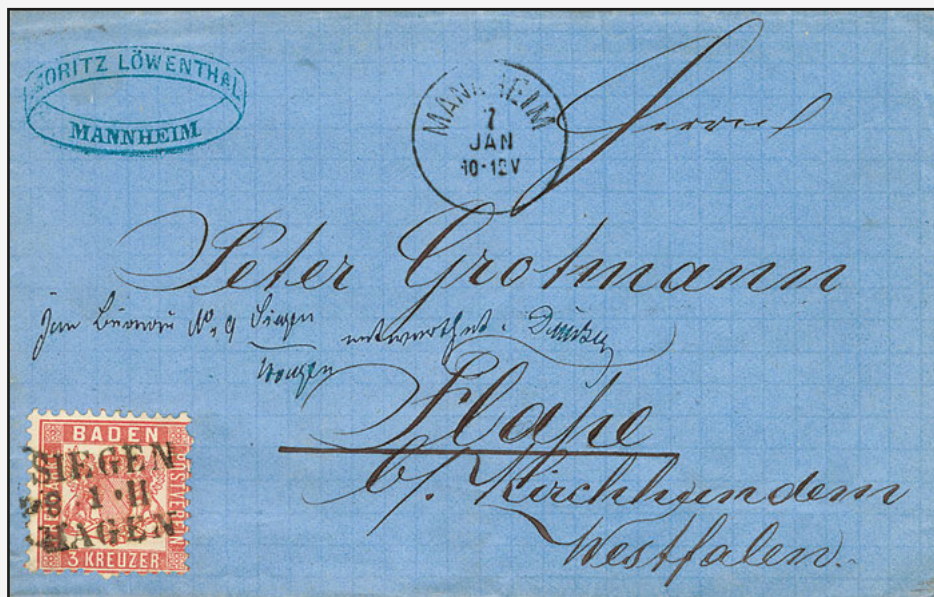 MORITZ LÖWENTHAL
MANNHEIM
MANNHEIM
7
JAN
10-12V
Herrn
Peter Grotmann
No. 9 Siegen
Hagen
Flape
b/. Kirchhundem
Westfalen.
BADEN
POSTVEREIN
3 KREUZER
SIEGEN
8 1 II
HAGEN